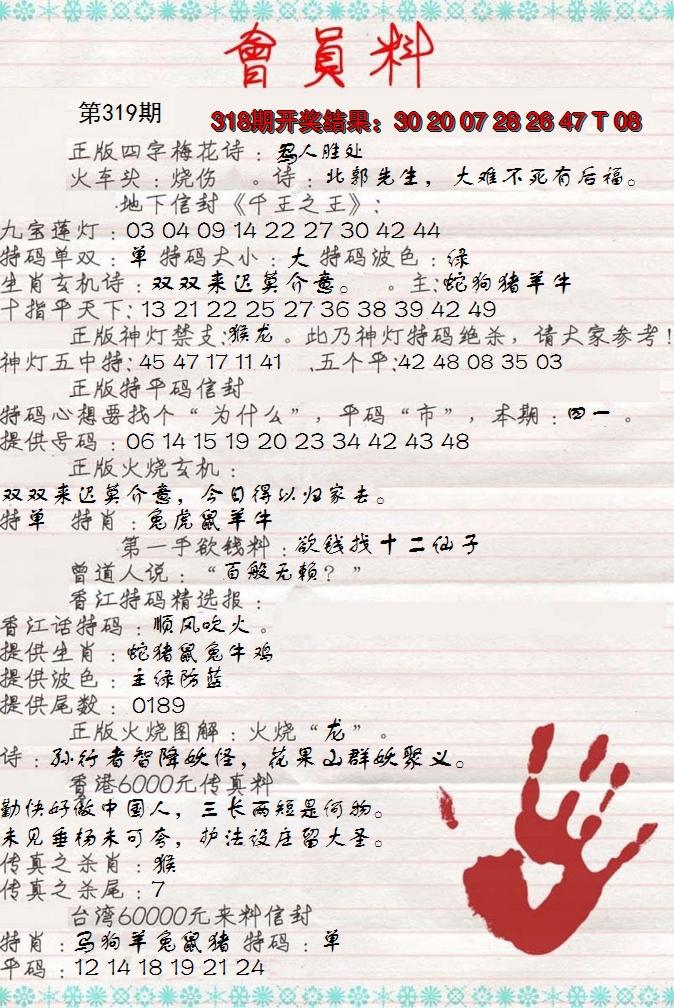 會員料
第319期
318期开奖结果：30 20 07 28 26 47 T 08
正版四字梅花诗：易人胜处
火车头：烧伤 。诗：北郭先生，大难不死有后福。
地下信封《千王之王》：
九宝莲灯：03 04 09 14 22 22 27 30 42 44
特码单双：单 特码大小：大 特码波色：绿
生肖玄机诗：双双来迟莫介意。 。主：蛇狗猪羊牛
十指平天下：13 21 22 25 27 36 38 39 42 49
正版神灯禁支：猴龙。此乃神灯特码绝杀，请大家参考！
神灯五中特：45 47 17 11 41 .五个平：42 48 08 35 03
正版特平码信封
特码心想要找个“为什么”，平码“市”，本期：四一。
提供号码：06 14 15 19 20 23 34 42 43 48
正版火烧玄机：
双双来迟莫介意，今日得以归家去。
特单 特肖：兔虎鼠羊牛
第一手欲钱料：欲钱找十二仙子
曾道人说：“百般无赖？”
香江特码精选报：
香江话特码：顺风吹火。
提供生肖：蛇猪鼠兔牛鸡
提供波色：主绿防蓝
提供尾数：0189
正版火烧图解：火烧“龙”。
诗：孙行者智降妖怪，花果山群妖聚义。
香港6000元传真料
勤快好做中国人，三长两短是何物。
未见垂杨未可夸，护法设庄留大圣。
传真之杀肖：猴
传真之杀尾：7
台湾60000元来料信封
特肖：马狗羊兔鼠猪 特码：单
平码：12 14 18 19 21 24